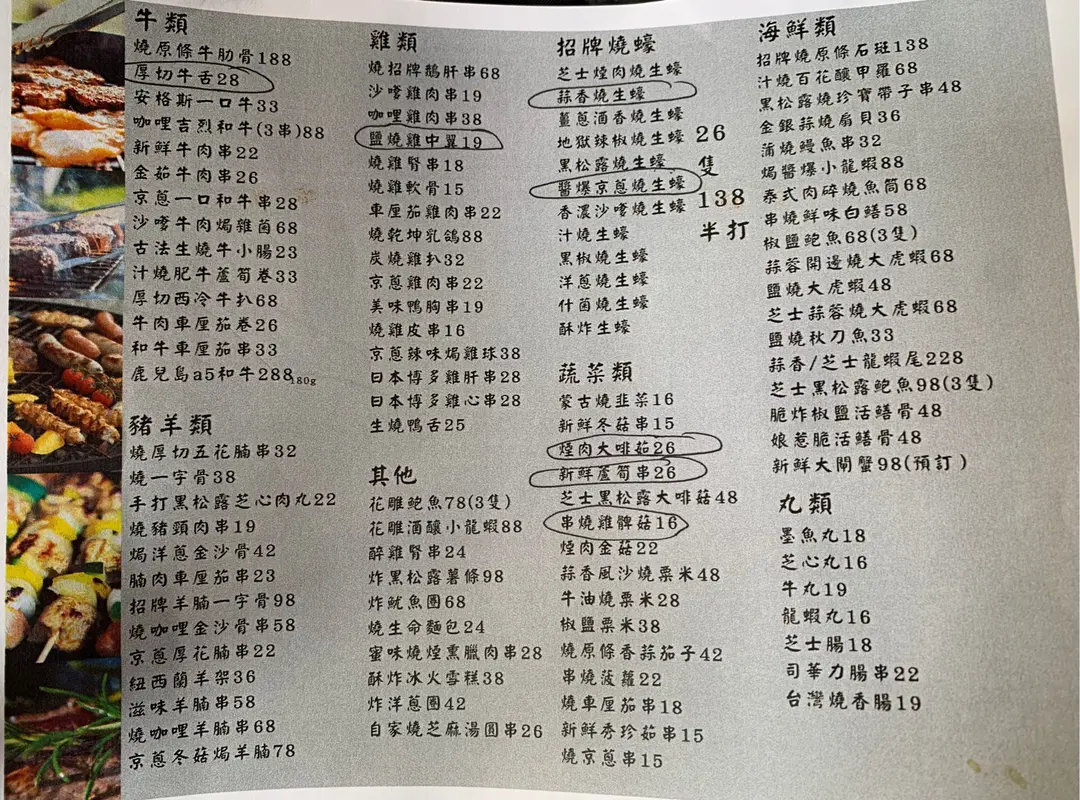 牛類
燒原條牛肋骨188
厚切牛舌28
安格斯一口牛33
咖哩吉烈和牛(3串)88
新鮮牛肉串22
金茹牛肉串26
京蔥一口和牛串28
沙嗲牛肉焗雜菌68
古法生燒牛小腸23
汁燒肥牛蘆筍卷33
厚切西冷牛扒68
牛肉車厘茄卷26
和牛車厘茄串33
鹿兒島a5和牛288 180g
豬羊類
燒厚切五花腩串32
燒一字骨38
手打黑松露芝心肉丸22
燒豬頸肉串19
焗洋蔥金沙骨42
腩肉車厘茄串23
招牌羊腩一字骨98
燒咖哩金沙骨串58
京蔥厚花腩串22
紐西蘭羊架36
滋味羊腩串58
燒咖哩羊腩串68
京蔥冬菇焗羊腩78
雞類
燒招牌鵝肝串68
沙嗲雞肉串19
咖哩雞肉串38
鹽燒雞中翼19
燒雞腎串18
燒雞軟骨15
車厘茄雞肉串22
燒乾坤乳鴿88
炭燒雞扒32
京蔥雞肉串22
美味鴨胸串19
燒雞皮串16
京蔥辣味焗雞球38
日本博多雞肝串28
日本博多雞心串28
生燒鴨舌25
其他
花雕鮑魚78(3隻)
花雕酒釀小龍蝦88
醉雞腎串24
炸黑松露薯條98
炸魷魚圈68
燒生命麵包24
蜜味燒煙熏臘肉串28
酥炸冰火雪糕38
炸洋蔥圈42
自家燒芝麻湯圓串26
招牌燒蠔
芝士煙肉燒生蠔
蒜香燒生蠔
薑蔥酒香燒生蠔
地獄辣椒燒生蠔
黑松露燒生蠔
醬爆京蔥燒生蠔
香濃沙嗲燒生蠔
汁燒生蠔
黑椒燒生蠔
洋蔥燒生蠔
什菌燒生蠔
酥炸生蠔
26
隻
138
半打
蔬菜類
蒙古燒韭菜16
新鮮冬菇串15
煙肉大啡茹26
新鮮蘆筍串26
芝士黑松露大啡菇48
串燒雞髀菇16
煙肉金菇22
蒜香風沙燒粟米48
牛油燒粟米28
椒鹽粟米38
燒原條香蒜茄子42
串燒菠蘿22
燒車厘茄串18
新鮮秀珍茹串15
燒京蔥串15
海鮮類
招牌燒原條石斑138
汁燒百花釀甲羅68
黑松露燒珍寶帶子串48
金銀蒜燒扇貝36
蒲燒鰻魚串32
焗醬爆小龍蝦88
泰式肉碎燒魚筒68
串燒鮮味白鱔58
椒鹽鮑魚68(3隻)
蒜蓉開邊燒大虎蝦68
鹽燒大虎蝦48
芝士蒜蓉燒大虎蝦68
鹽燒秋刀魚33
蒜香/芝士龍蝦尾228
芝士黑松露鮑魚98(3隻)
脆炸椒鹽活鱔骨48
娘惹脆活鱔骨48
新鮮大閘蟹98(預訂)
丸類
墨魚丸18
芝心丸16
牛丸19
龍蝦丸16
芝士腸18
司華力腸串22
台灣燒香腸19